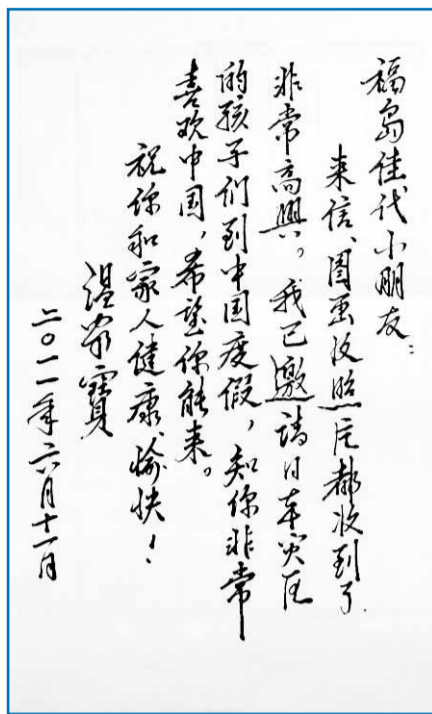 福島佳代小朋友:
来信、图画及照片都收到了,
非常高興。我已邀请日本灾区
的孩子们到中国度假,知你非常
喜欢中国,希望你能来。
祝你和家人健康、愉快!
温家寳
二〇一一年六月十一日